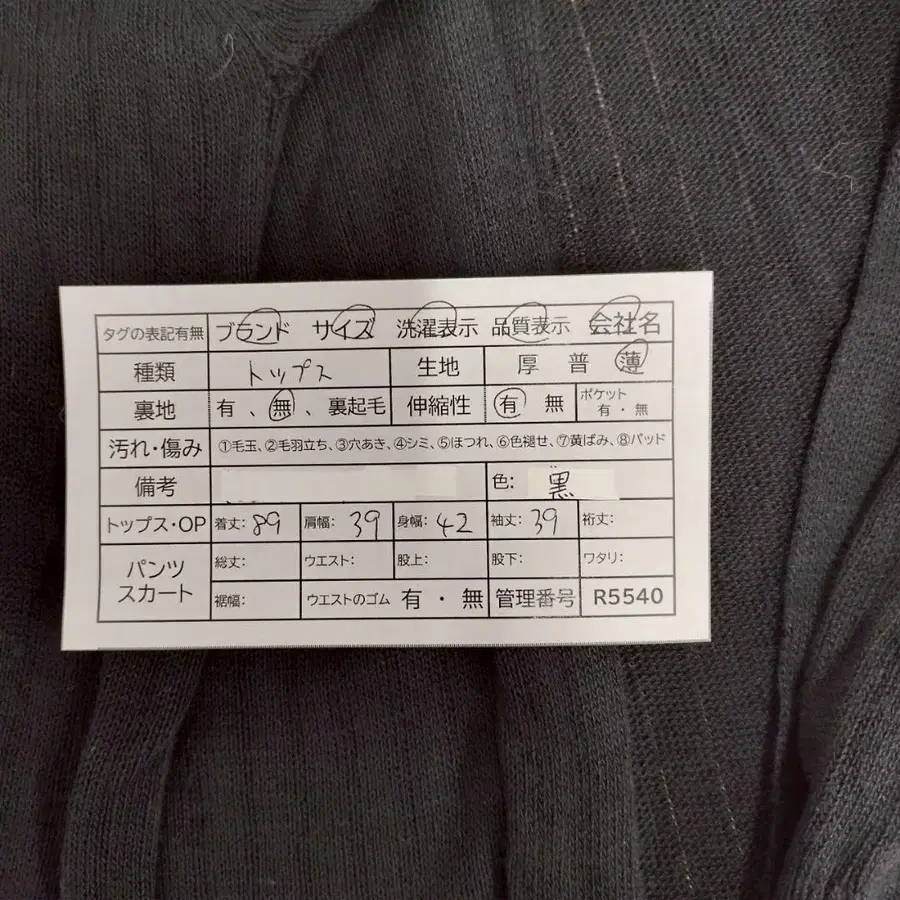 タグの表記有無 ブランド サイズ 洗濯表示 品質表示 会社名
種類 トップス 生地 厚 普 薄
裏地 有 、 無 、 裏起毛 伸縮性 有 無 ポケット 有 ・ 無
汚れ・傷み ①毛玉、②毛羽立ち、③穴あき、④シミ、⑤ほつれ、⑥色褪せ、⑦黄ばみ、⑧パッド
備考 色: 黒
トップス・OP 着丈: 89 肩幅: 39 身幅: 42 袖丈: 39 裄丈:
パンツ スカート 総丈: ウエスト: 股上: 股下: ワタリ:
裾幅: ウエストのゴム 有 ・ 無 管理番号 R5540